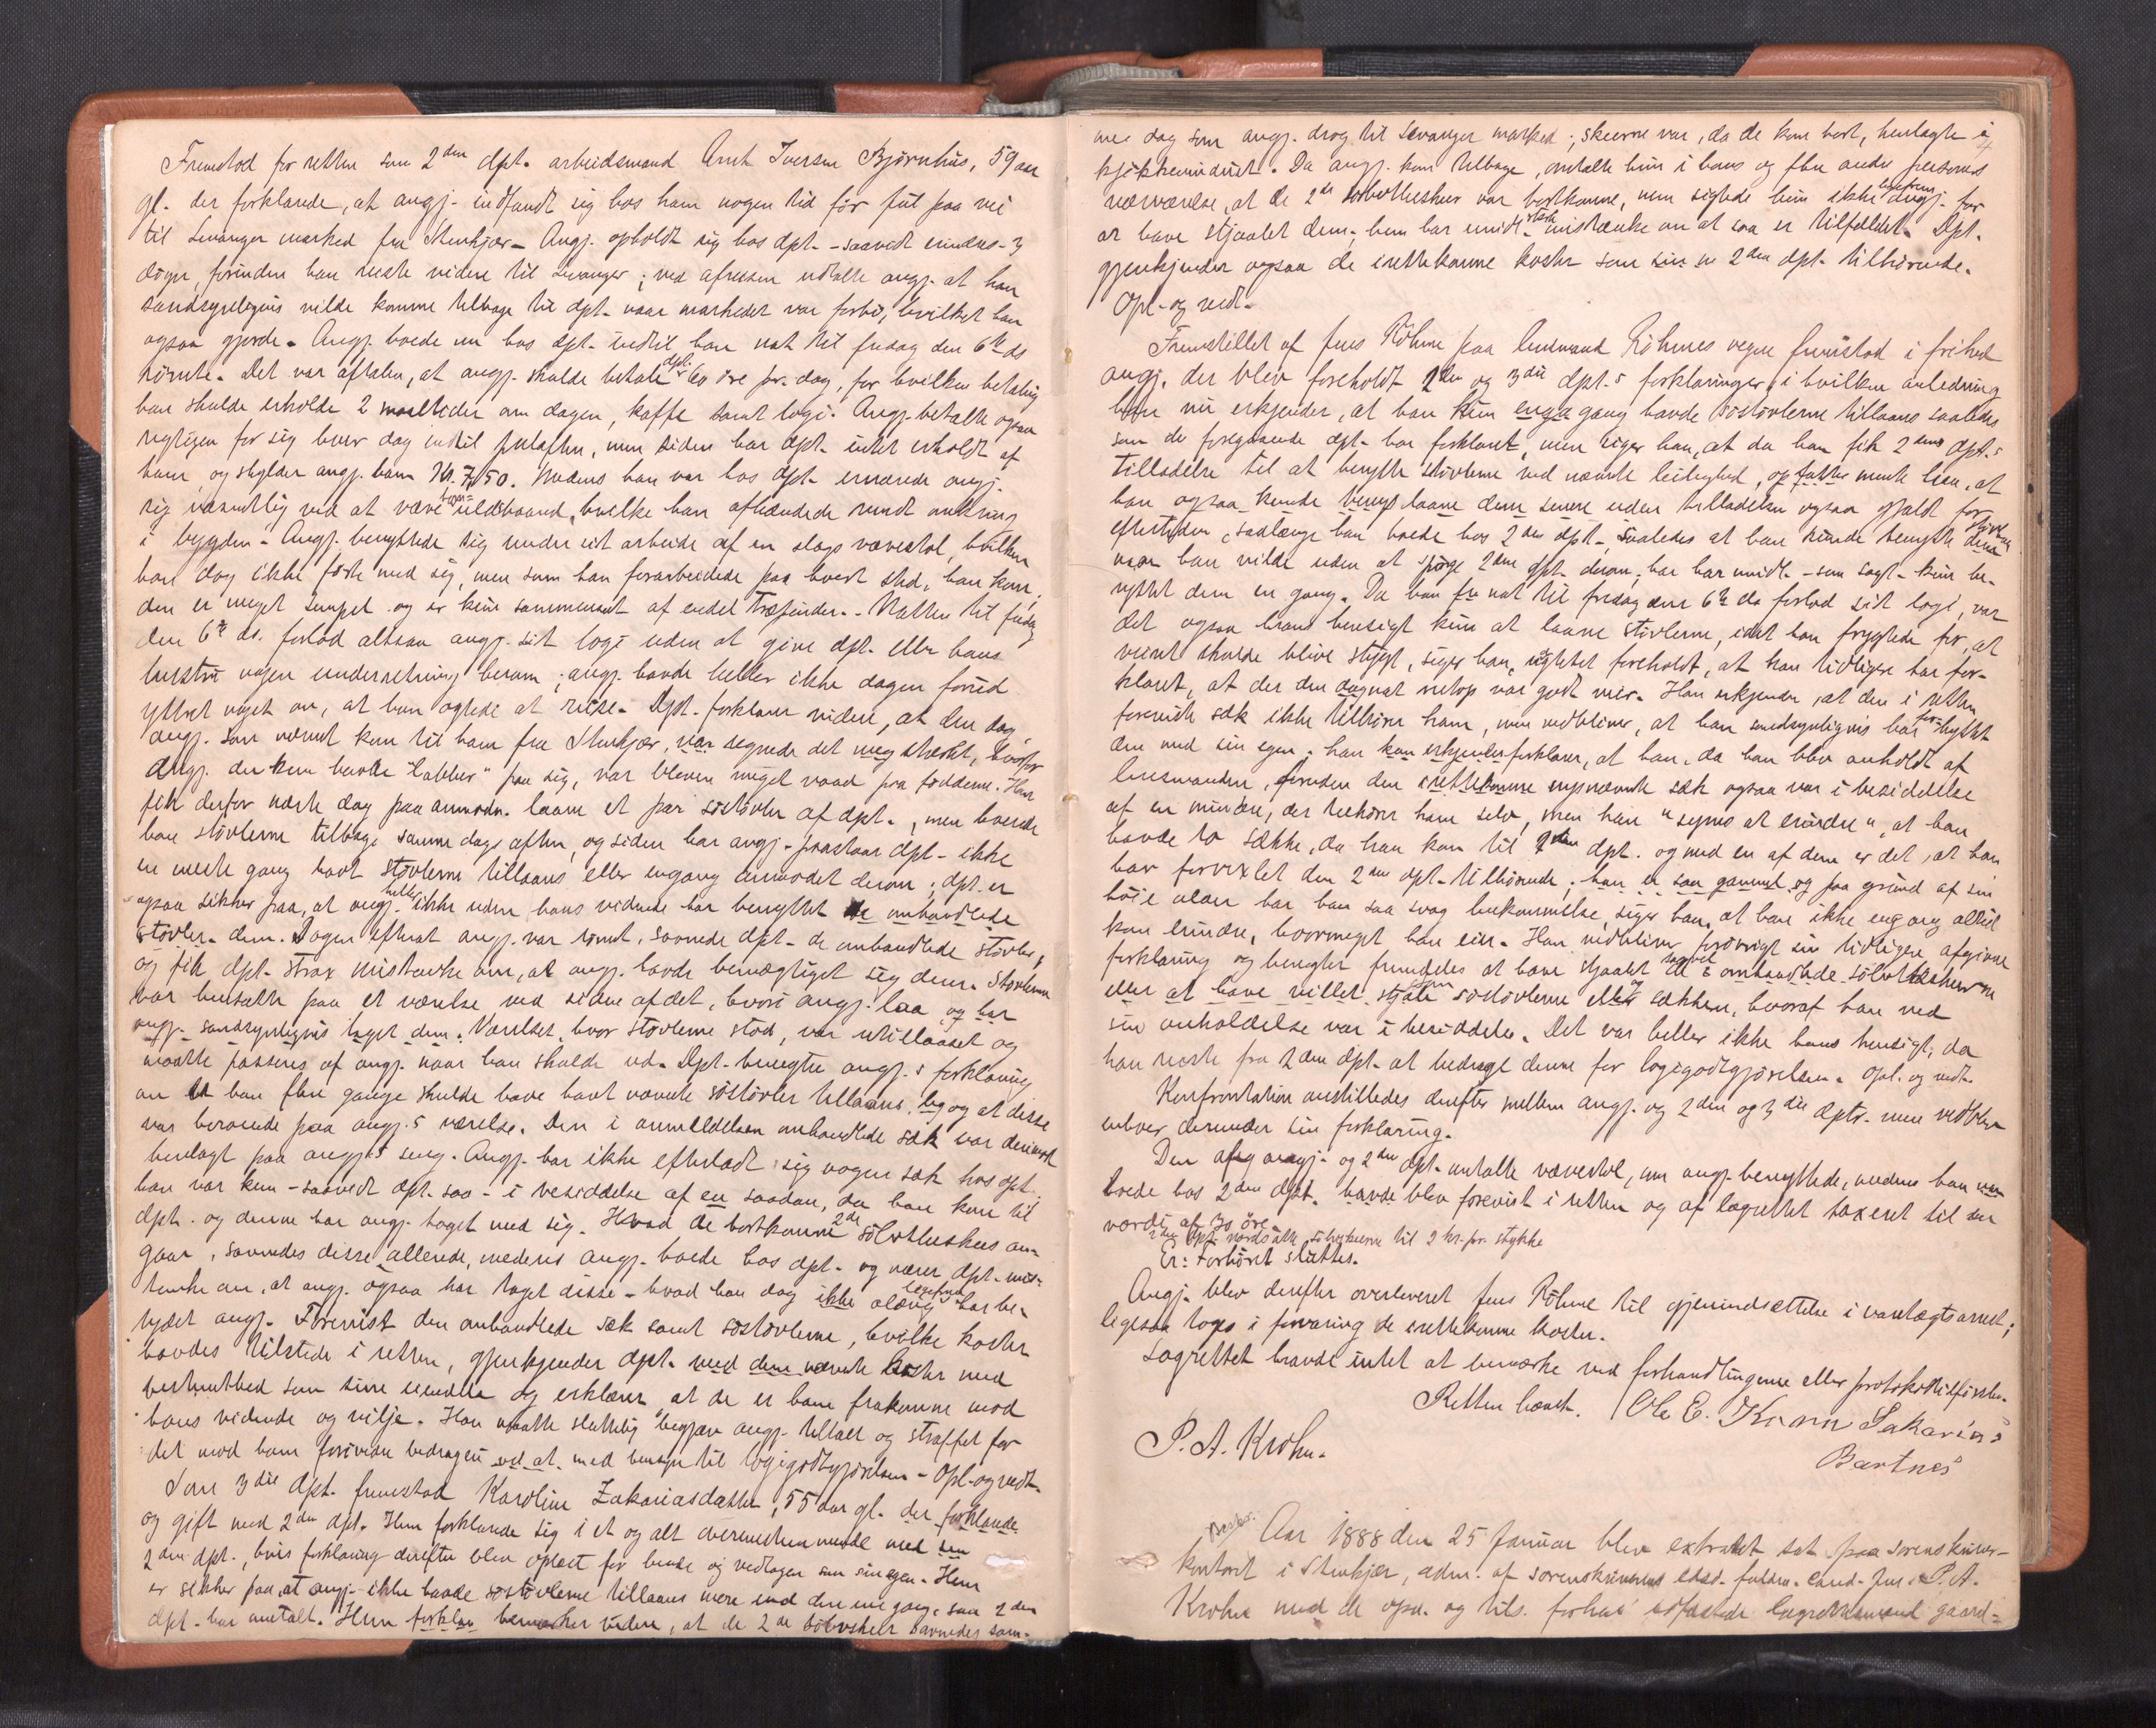 Fremstod for retten som 2den dpt. arbeidsmand Arnt Iversen Bjørnhus, 59 aar
gl. der forklarede, at angj. indfandt sig hos ham nogen tid før jul paa vei
til Levanger marked fra Stenkjær - Angj. opholdt sig hos dpt. - saavidt mindes - 3
døgn, forinden han reiste videre til Levanger; ved afreisen udtalte angj. at han
sandsynligvis vilde komme tilbage til dpt. naar markedet var forbi, hvilket han
ogsaa gjorde. Angj. boede nu hos dpt. indtil han nat til fredag den 6te ds
rømte. Det var aftalen, at angj. skulde betale dpt. 60 øre pr. dag, for hvilken betaling
han skulde erholde 2 maaltider om dagen, kaffe samt logi. Angj. betalte ogsaa
rigtigen for sig hver dag indtil juleaften, men siden har dpt. intet erholdt af
ham, og skylder angj. ham Kr. 7,50. Medens han var hos dpt. ernærede angj.
sig væsentlig ved at væve uldbaand, hvilke han afhændede rundt omkring
i bygden - Angj. benyttede sig under sit arbeide af en slags vævestol, hvilken
han dog ikke førte med sig, men som han forarbeidede paa hvert sted, han kom;
den er meget simpel og er kun sammensat af endel træpinder. - Natten til fredag
den 6te ds. forlod altsaa angj. sit logi uden at give dpt. eller hans
hustru nogen underretning herom; angj. havde heller ikke dagen forud
yttret noget om, at han agtede at reise. Dpt. forklarer videre, at den dag,
angj. som nævnt kom til ham fra Stenkjær, var regnede det meg stærkt, hvorfor
angj. der kun havde "labber" paa sig, var bleven meget vaad paa fødderne. Han
fik derfor næste dag paa anmodn. laane et par søstøvler af dpt., men leverede
han støvlerne tilbage samme dags aften, og siden har angj. - paastaar dpt. - ikke
en eneste gang havt støvlerne tillaans eller engang anmodet derom; dpt. er
ogsaa sikker paa, at angj. heller ikke uden hans vidende har benyttet de omhandlede
støvler. dem. Dagen efterat angj. var rømt, savnede dpt. de omhandlede støvler,
og fik dpt. strax mistanke om, at angj. havde bemægtiget sig dem. Støvlerne
var hensatte paa et værelse ved siden af det, hvori angj. laa og har
angj. sandsynligvis taget dem. Værelset, hvor støvlerne stod, var uaflaaset og
maatte passeres af angj. naar han skulde ud. Dpt. benegter angj.s forklaring
om at han flere gange skulde have havt nævnte søstøvler tillaans, og og at disse
var beroende paa angj.s værelse. Den i anmeldelsen omhandlede sæk var derimod
henlagt paa angj.s seng. Angj. har ikke efterladt sig nogen sæk hos dpt.;
han var kun - saavidt dpt. saa - i besiddelse af en saadan, da han kom til
dpt. og denne har angj. taget med sig. Hvad de bortkomne 2de sølvtheskeer an-
gaar, savnedes disse allerede, medens angj. boede hos dpt. og nærer dpt. mis-
tanke om, at angj. ogsaa har taget disse - hvad han dog ikke ligefrem har be-
tydet angj. Forevist den omhandlede sæk samt søstøvlerne, hvilke koster
havdes tilstede i retten, gjenkjender dpt. med den nævnte koster med
bestemthed som sine eiendele og erklærer at de er ham frakomne mod
hans vidende og vilje. Han maatte sluttelig begjære angj. tiltalt og straffet for
det mod ham forøvede bedrageri ved at med hensyn til logigodtgjørelsen - Opl. og vedt.
Som 3die dpt. fremstod Karoline Zakariasdatter, 55 aar gl. der forklarede
og gift med 2den dpt. Hun forklarede sig i et og alt overensstemmende med sin
2den dpt., hvis forklaring derefter blev oplæst for hende og vedtagen som sin egen. Hun
er sikker paa, at angj. ikke havde søstøvlerne tillaans mere end den ene gang, som 2den
dpt. har omtalt. Hun forklar bemærker videre, at de 2de sølvskeer savnedes sam-
me dag som angj. drog til Levanger marked; skeerne var, da de kom bort, henlagte i
kjøkkenvinduet. Da angj. kom tilbage, omtalte hun i hans og flere andre personers
nærværelse, at de 2de sølvtheskeer var bortkomne, men sigtede hun ikke ligefrem angj. for
at have stjaalet dem; hun har imidl. stærk mistanke om at saa er tilfældet. Dpt.
gjenkjender ogsaa de i rettekomne koster som sin 2den dpt. tilhørende.
Opl. og vedt.
Fremstillet af Jens Röhme paa lensmand Röhmes vegne fremstod i frihed
angj. der blev foreholdt 2den og 3die dpt.s forklaringer, i hvilken anledning
han nu erkjender, at han kun enga gang havde søstøvlerne tillaans saaledes
som de foregaaende dpt. har forklaret, men siger han, at da han fik 2dens dpt.s
tilladelse til at benytte støvlerne ved nævnte leilighed, op fatter mente han, at
han ogsaa kunde laane dem senere uden tilladelse ogsaa gjaldt for
eftertiden, saalænge han boede hos 2den dpt., saaledes at han kunde benytte støvlerne
naar han vilde uden at spørge 2den dpt. derom; har har imidl. - som sagt - kun be-
nyttet dem en gang. Da han fra nat til fredag den 6te ds forlod sit logi, var
det ogsaa hans hensigt kun at laane støvlerne, idet han frygtede for, at
veiret skulde blive stygt, siger han, uagtet foreholdt, at han tidligere har for-
klaret, at der den dagnat netop var godt veir. Han erkjender, at den i retten
foreviste sæk ikke tilhører ham, men vedbliver, at han sandsynligvis har forbyttet
den med sin egen; han kan erkjender forklarer, at han, da han blev anholdt af
lensmanden, foruden den i rettekomne nysnævnte sæk ogsaa var i besiddelse
af en mindre, der tilhører ham selv, men han "synes at erindre", at han
havde to sække, da han kom til 2den dpt. og med en af dem er det, at han
har forvexlet den 2den dpt. tilhørende; han er saa gammel og paa grund af sin
høie alder har han saa svag hukommelse, siger han, at han ikke engang altid
kan erindre, hvormeget han eier. Han vedbliver forøvrigt sin tidligere afgivne
forklaring og benegter fremdeles at have stjaalet saavel de omhandlede sølvtheskeerne
eller at have villet stjæle som søstøvlerne eller og sækken, hvoraf han ved
sin anholdelse var i besiddelse. Det var heller ikke hans hensigt, da
han reiste fra 2den dpt. at bedrage denne for logigodtgjørelsen. Opl. og vedt.
Konfrontation anstilledes derefter mellem angj. og 2den og 3die dpts. men vedblev
enhver derunder sin forklaring.
Den afg angj. og 2den dpt. omtalte vævestol, som angj. benyttede, medens han var
boede hos 2den dpt. havde blev forevist i retten og af lagrettet taxeret til en
værdi af 30 øre.
2den dpt. værdsatte sølvskeerne til 2 kr. pr. stykke
Er: Forhøret sluttes.
Angj. blev derefter overleveret Jens Röhme til gjenindsættelse i varetægtsarrest;
ligesaa toges i forvaring de i rettekomne koster.
Lagrettet havde intet at bemærke ved forhandlingerne eller protokoltilførslen.
Retten hævet.
P. A. Krohn. Ole E. Kvam Sakarias
Bartnes
Beskr.
Aar 1888 den 25 Januar blev extraret sat paa sorenskriver-
kontoret i Stenkjær, adm. af sorenskriverens edsf. fuldm. cand. jur. P. A.
Krohn med de opn. og tils. forhen edfæstede lagrettesmænd gaard-